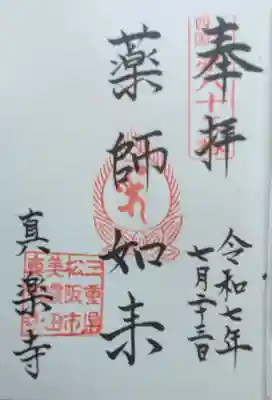 奉拝
令和七年
七月二十三日
薬師如来
三重県
松阪市
美濃田
真楽寺